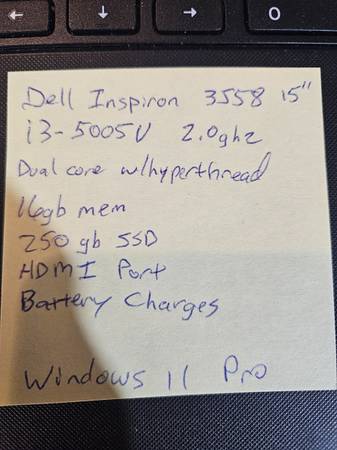 ← ↓ → 0
Dell Inspiron 3558 15"
i3-5005U 2.0ghz
Dual core w/hyperthread
16gb mem
250 gb SSD
HDMI Port
Battery Charges
Windows 11 Pro